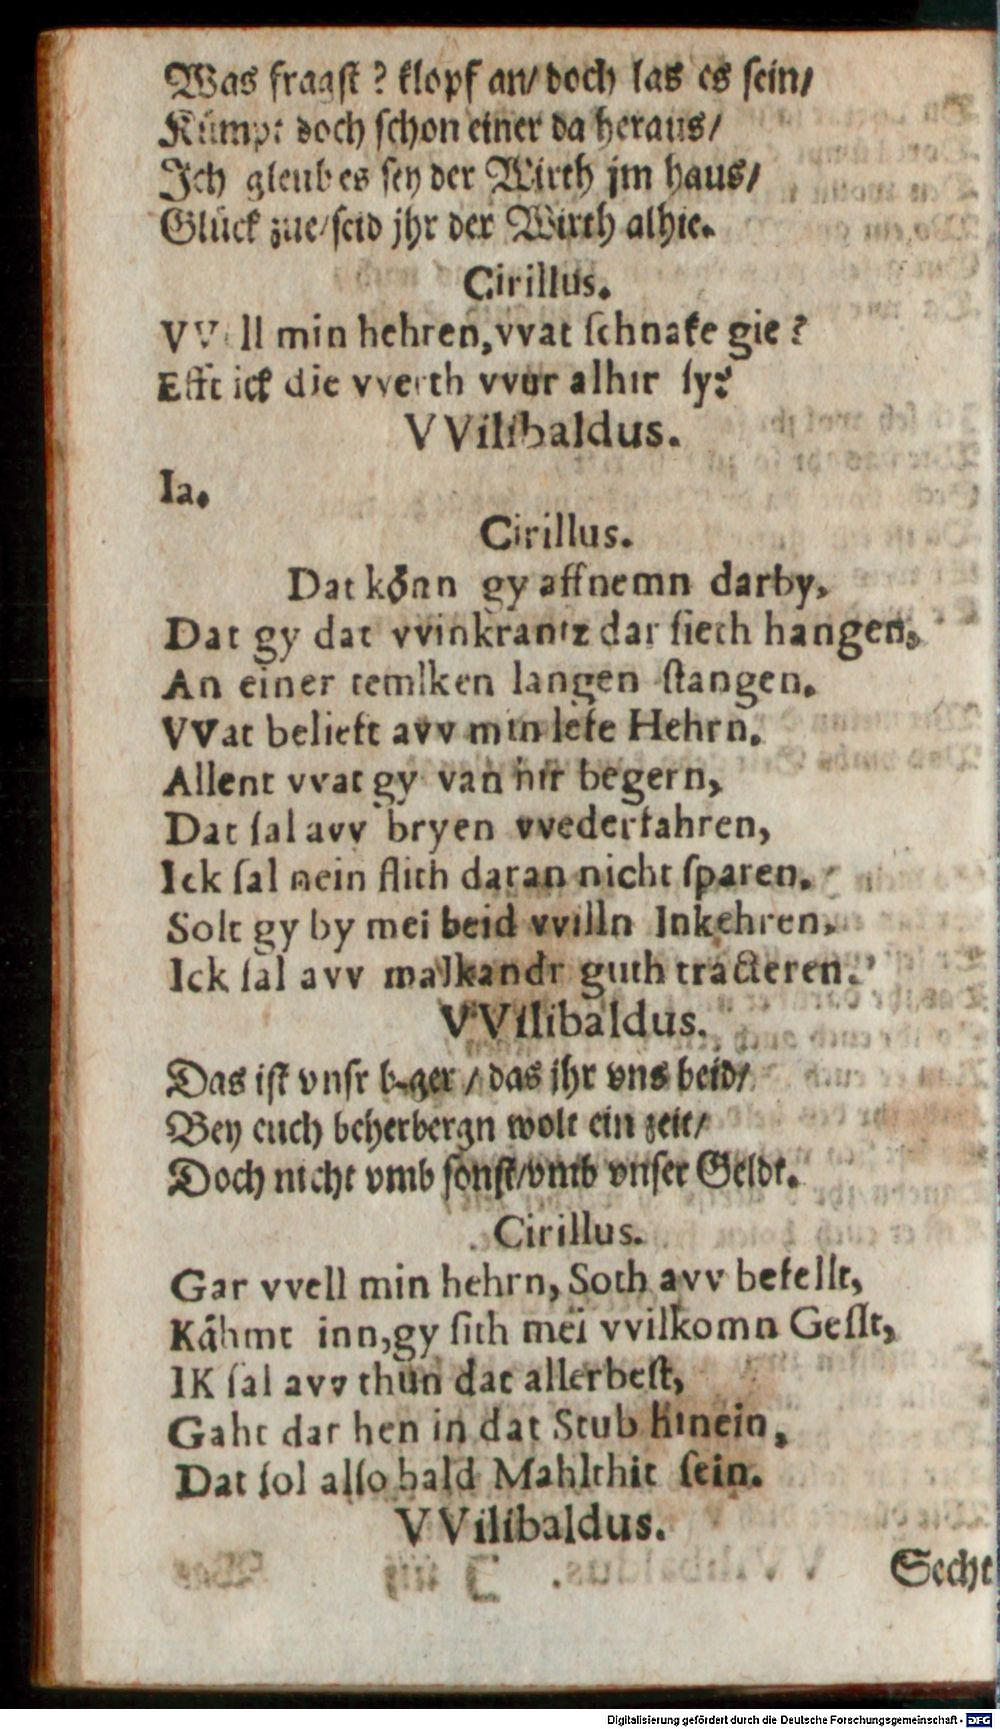 Was fragst? klopf an/ doch las es sein/
Kümpt doch schon einer da heraus/
Ich gleub es sey der Wirth jm haus/
Glück zue/ seid jhr der Wirth alhie.
Cirillus.
VVell min hehren, vvat schnake gie?
Efft ick die vverth vvur alhir sy?
VVilibaldus.
Ia.
Cirillus.
Dat kônn gy affnemn darby,
Dat gy dat vvinkrantz dar sieth hangen,
An einer temlken langen stangen.
VVat belieft avv min lefe Hehrn.
Allent vvat gy van mir begern,
Dat sal avv bryen vvederfahren,
Ick sal nein flith daran nicht sparen.
Solt gy by mei beid vvilln Inkehren,
Ick sal avv malkandr guth tracteren.
VVilibaldus.
Das ist vnsr beger / das jhr vns beid/
Bey euch beherbergn wolt ein zeit/
Doch nicht vmb sonst/vmb vnser Geldt.
Cirillus.
Gar vvell min hehrn, Soth avv befellt,
Kåhmt inn, gy sith mei vvilkomn Geslt,
IK sal avv thun dat allerbest,
Gaht dar hen in dat Stub hinein,
Dat sol also bald Mahlthit sein.
VVilibaldus.
Secht
Digitalisierung gefördert durch die Deutsche Forschungsgemeinschaft - DFG